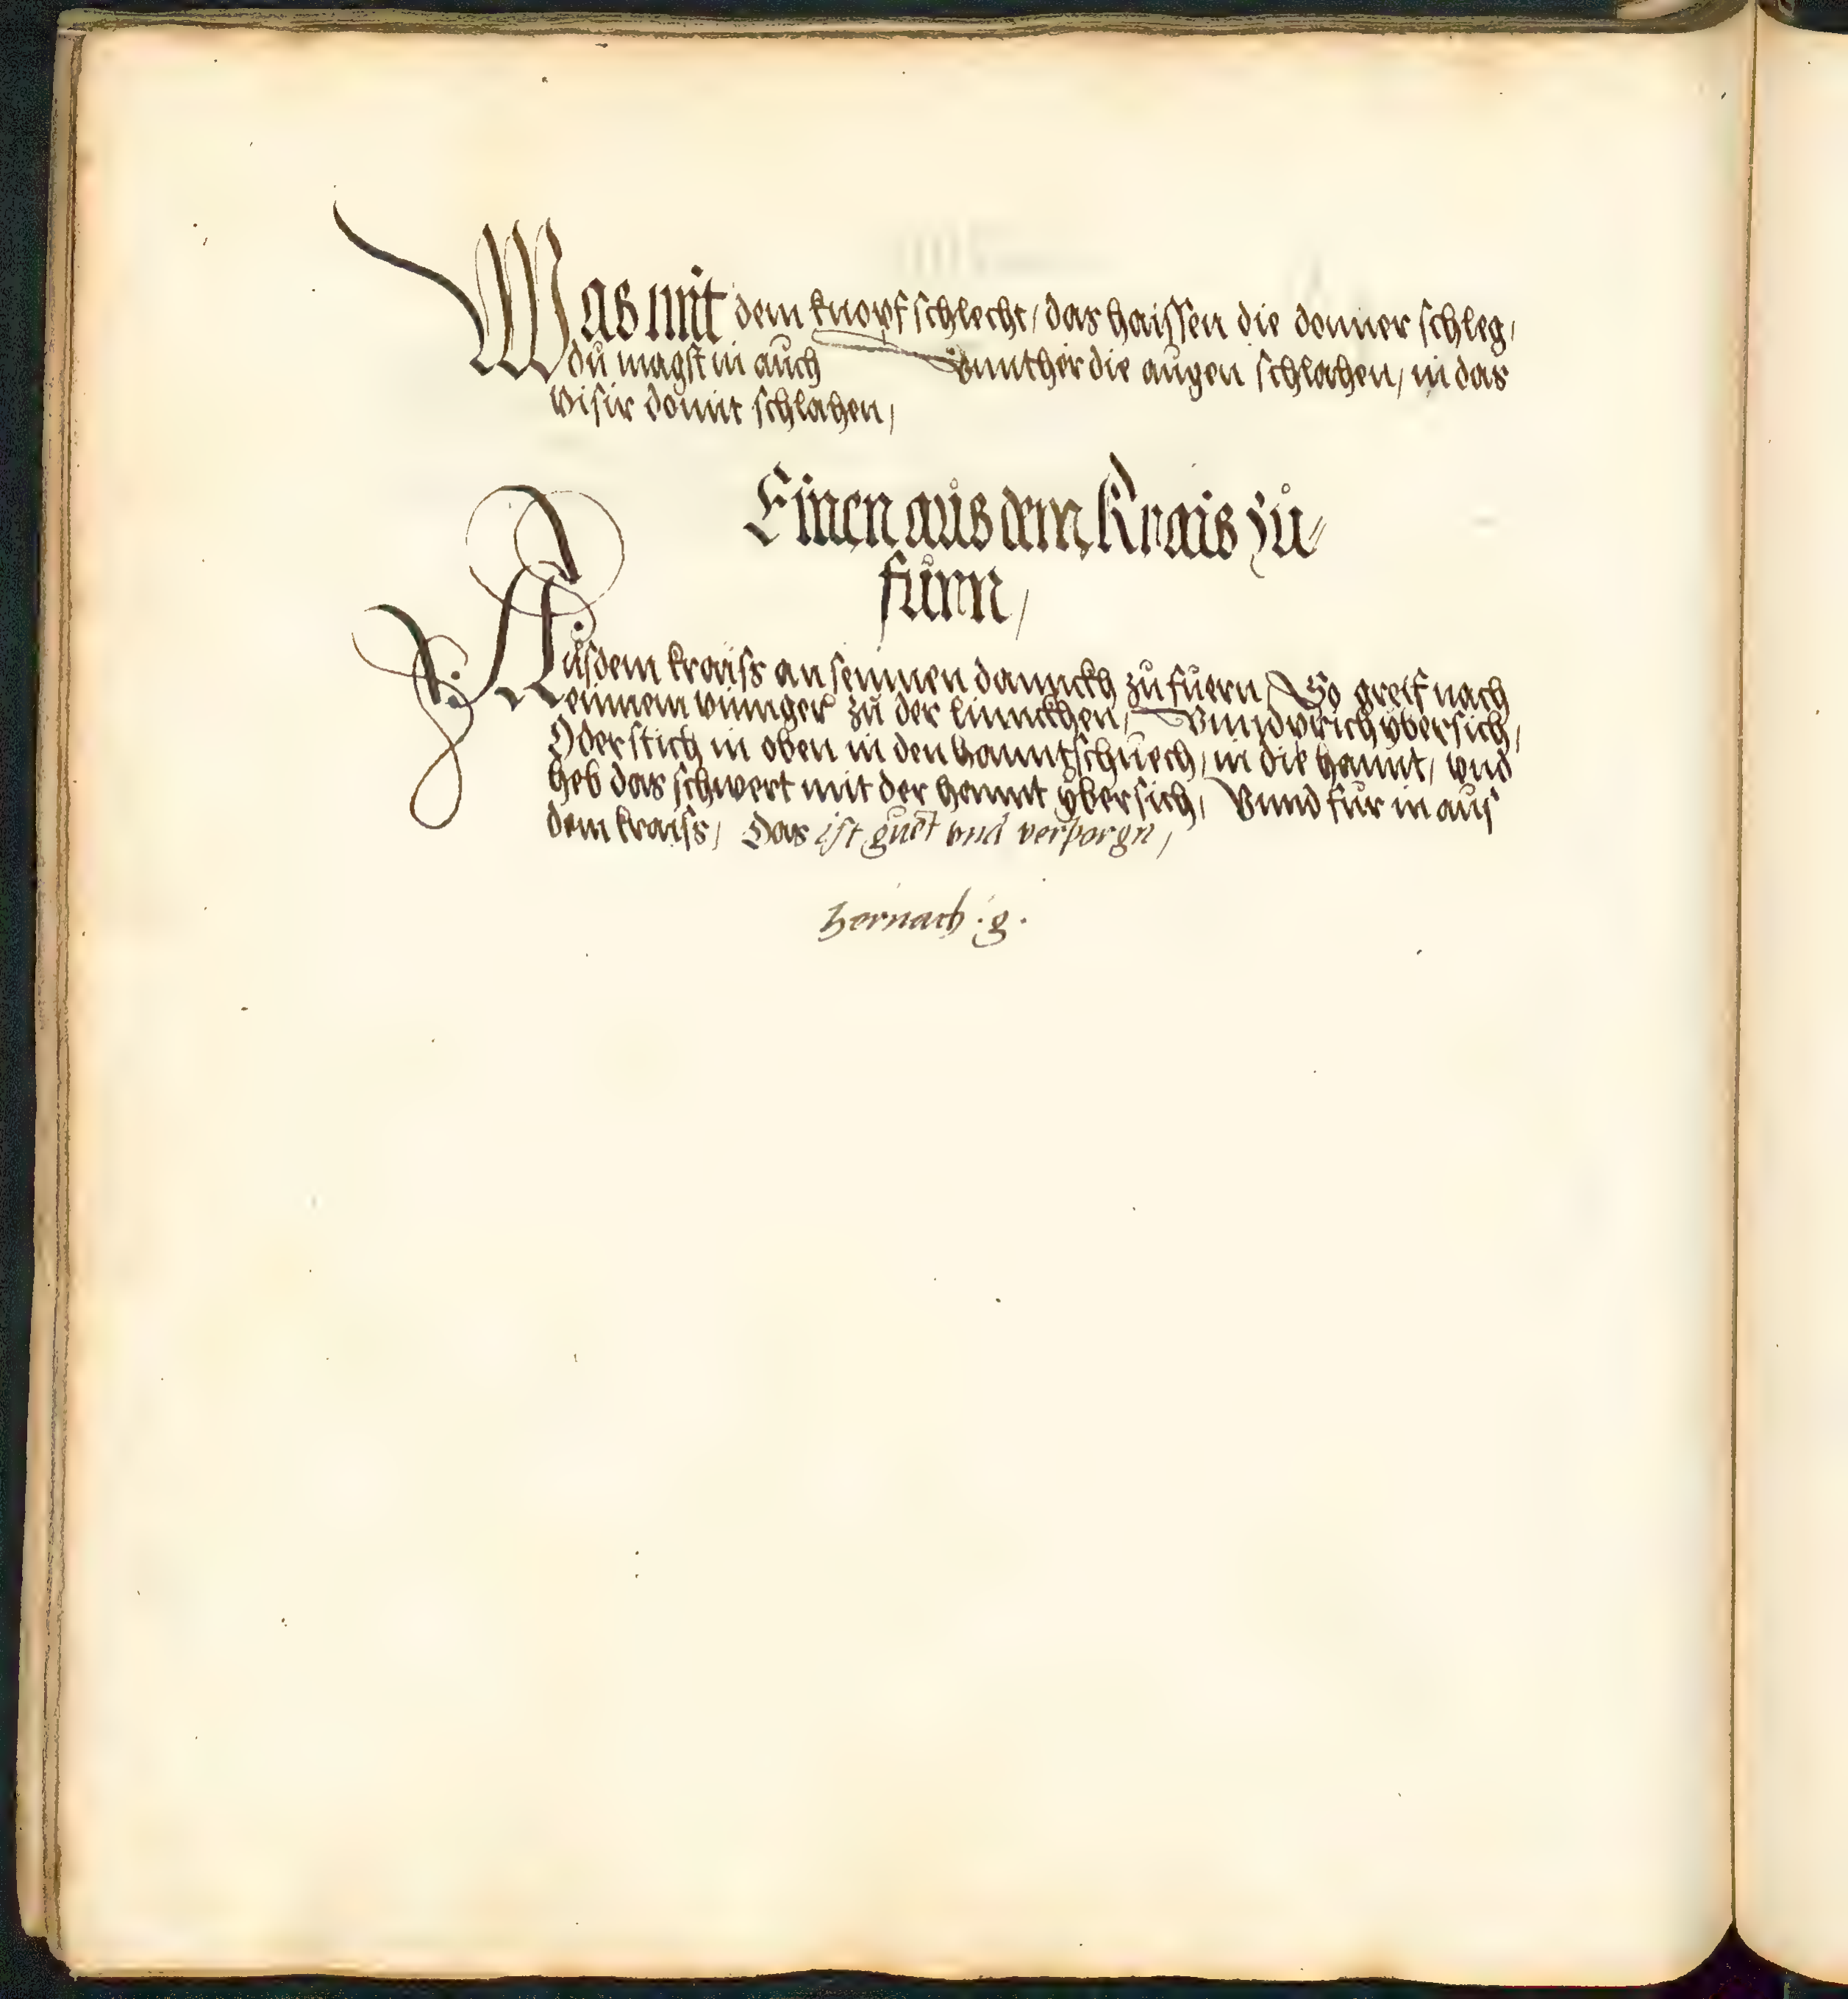 Was mit dem knopf schlecht / das haissen die donner schleg /
du magst in auch vnnther die augen schlahen / in das
visir domit schlahen /
Einen aůs dem Krais zů⸗
fůrn /
Aůs dem kraiss an seinnen dannckh zů fůern / So greif nach
einnem vinnger zů der linnckhen / Vnnd prich ybersich /
Oder stich in oben in den hanntschuech / in die hannt / vnd
heb das schwert mit der hannt ybersich / Vnnd fůr in aůs
dem kraiss / Das ist guet vnd verporgn /
hernach · g ·